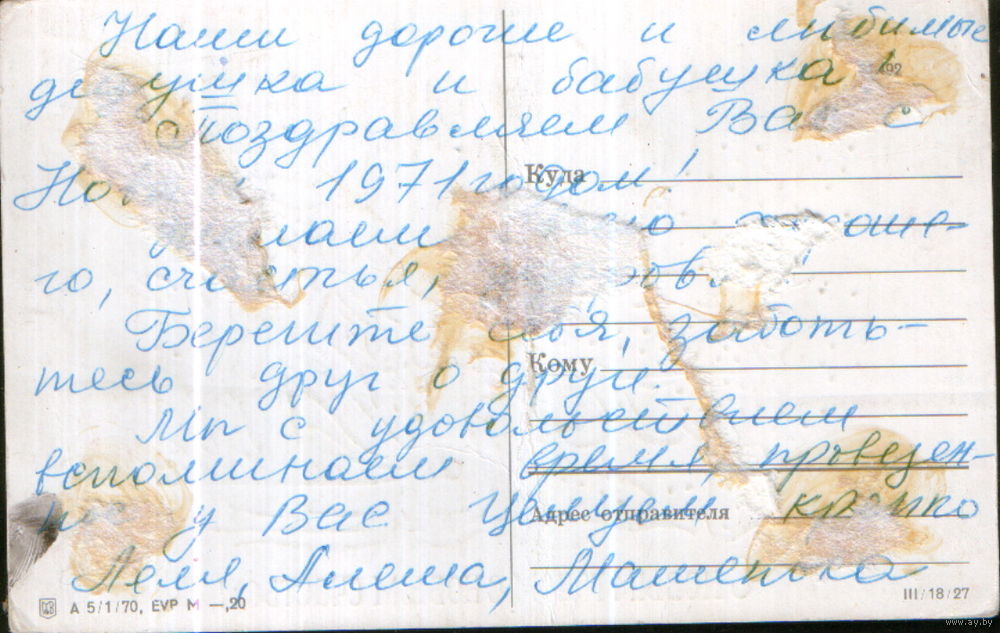 Наши дорогие и любимые
дедушка и бабушка!
Поздравляем Вас с
Новым 1971 годом!
Желаем всего хороше-
го, счастья, здоровья!
Берегите себя, заботь-
тесь друг о друге.
Мы с удовольствием
вспоминаем время, проведен-
ное у Вас. Целуем крепко
Леля, Алеша, Машенька
Куда
Кому
Адрес отправителя
A 5/1/70, EVP M —,20
III/18/27
www.ay.by